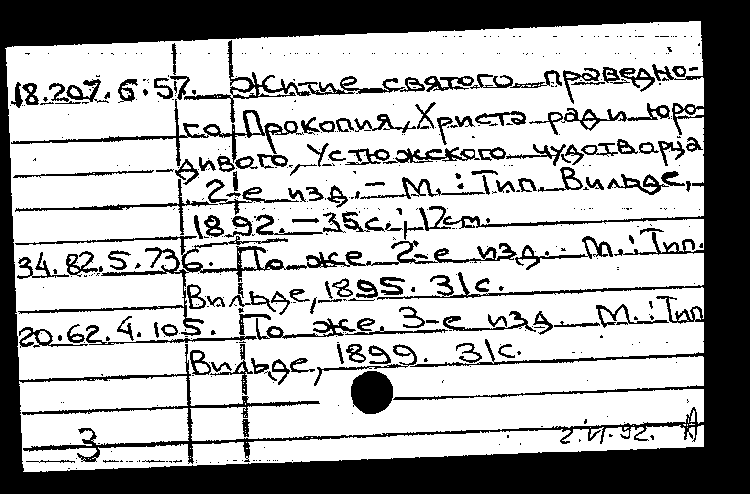 18.207.6.57. Житие святого праведно-
го Прокопия, Христа ради юро-
дивого, Устюжского чудотворца
2-е изд. – М. : Тип. Вильде,
1892. – 35с. ; 17см.
34.82.5.736. То же. 2-е изд. М. : Тип.
Вильде, 1895. 31с.
20.62.4.105. То же. 3-е изд. М. : Тип
Вильде, 1899. 31с.
3 2.VI.92.